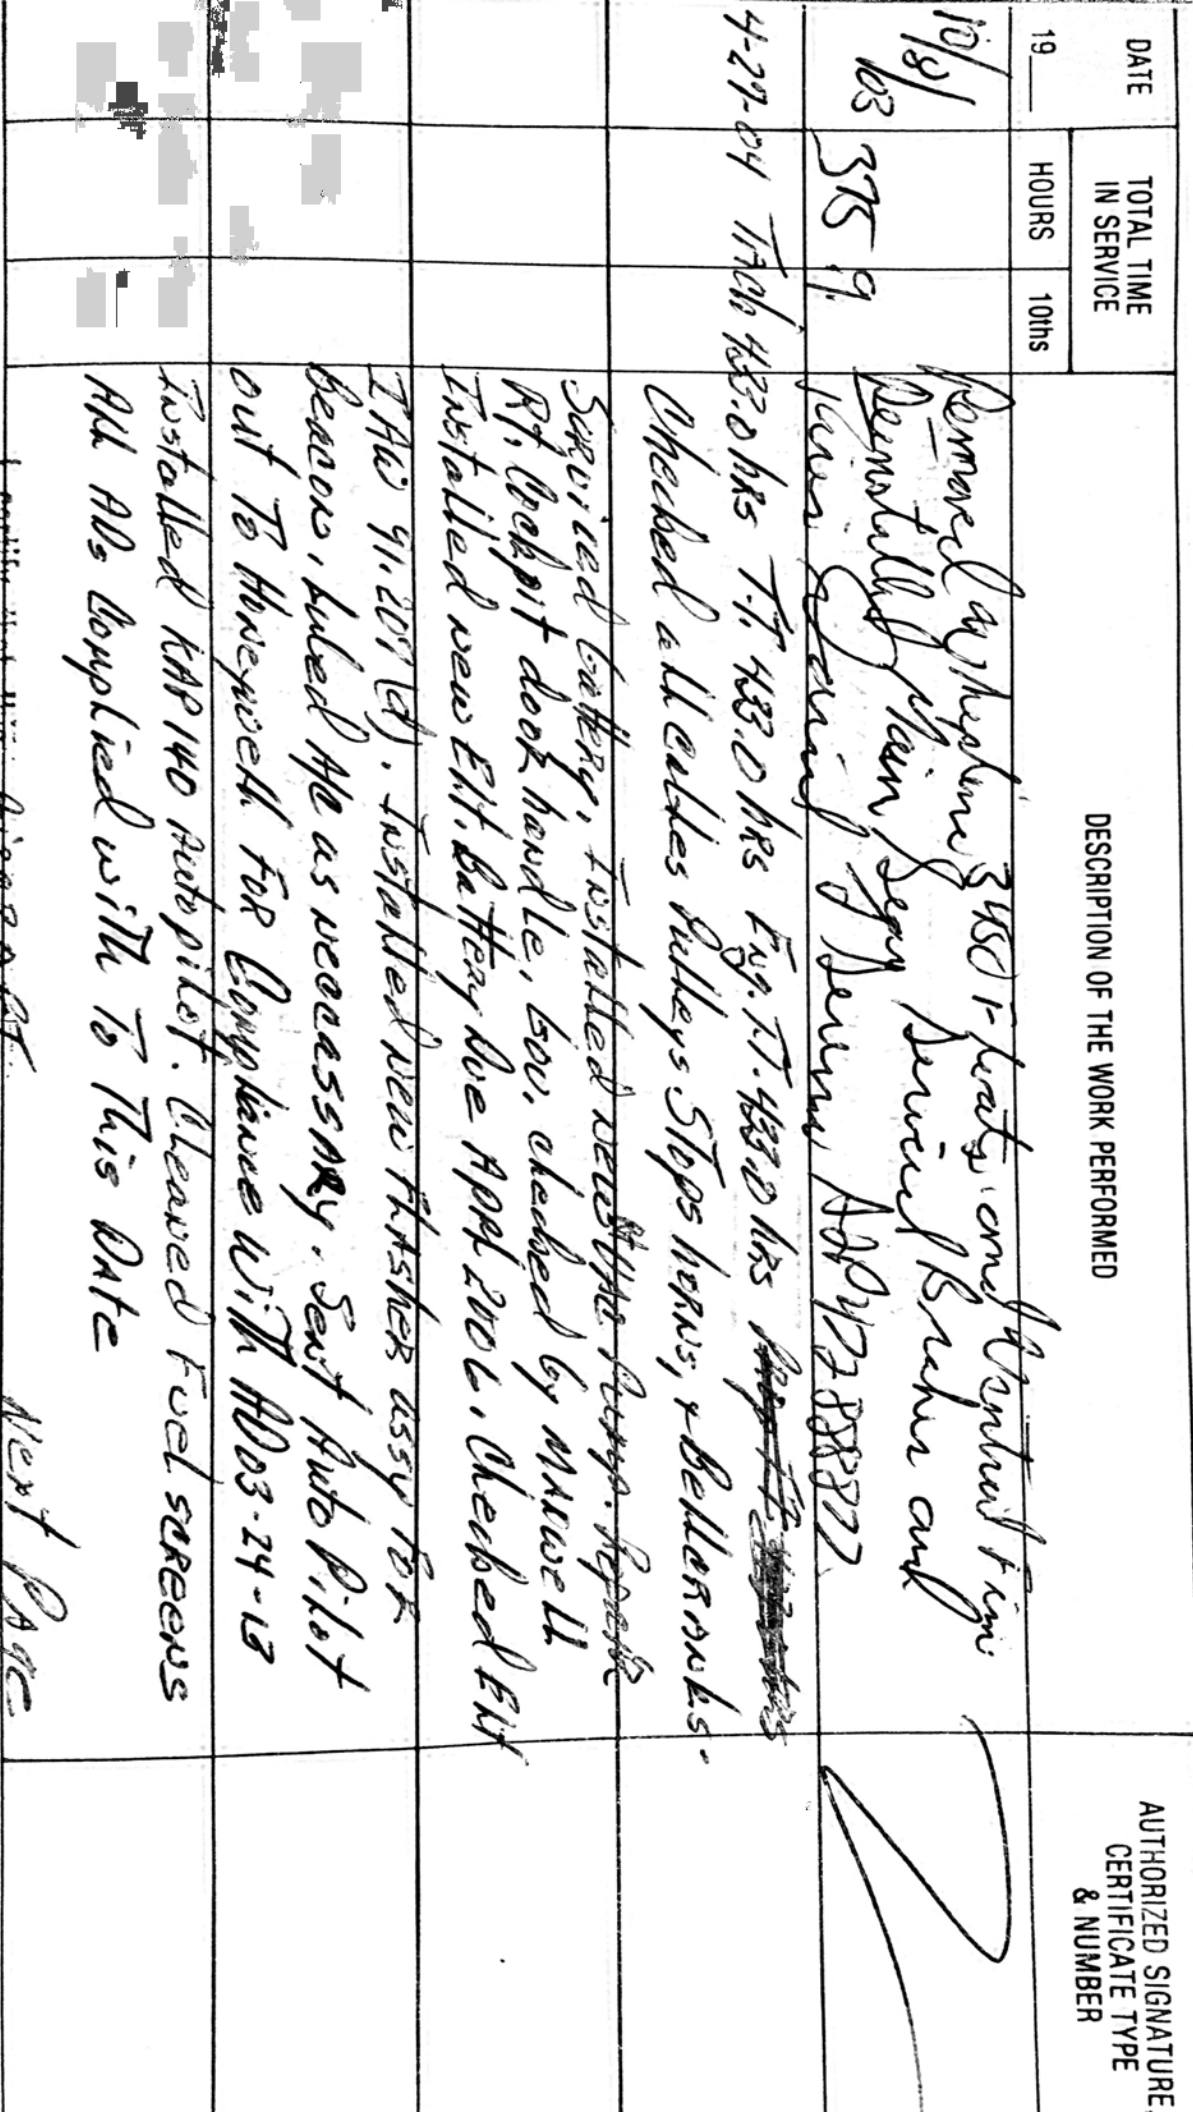 DATE
19
TOTAL TIME
IN SERVICE
HOURS
10ths
DESCRIPTION OF THE WORK PERFORMED
AUTHORIZED SIGNATURE,
CERTIFICATE TYPE
& NUMBER
10/8/
03
375 9
Removed 3480 Floats and
Reinstalled Main Gear Serviced Brakes and
4-27-04 TACh 433.0 hRs T.T. 433.0 hRs Eng. T.T. 433.0 hRs
Checked all cables Pulleys Stops horns, + Bellcranks.
Serviced battery. Installed new Pump. Repair
Rt. Cockpit door handle, Gov. checked by MAxwell
Installed new Elt. Battery Due Apri 2006. Checked Elt
IAW 91.207(d). Installed new Flasher assy for
Beacon, Lubed A/c as neccassARy. Sent Auto Pilot
out To Honeywell For Compliance With AD03-24-13
Installed KAP 140 Autopilot. Cleaned Fuel SCREENS
All ADs Complied with To This Date
Next Page